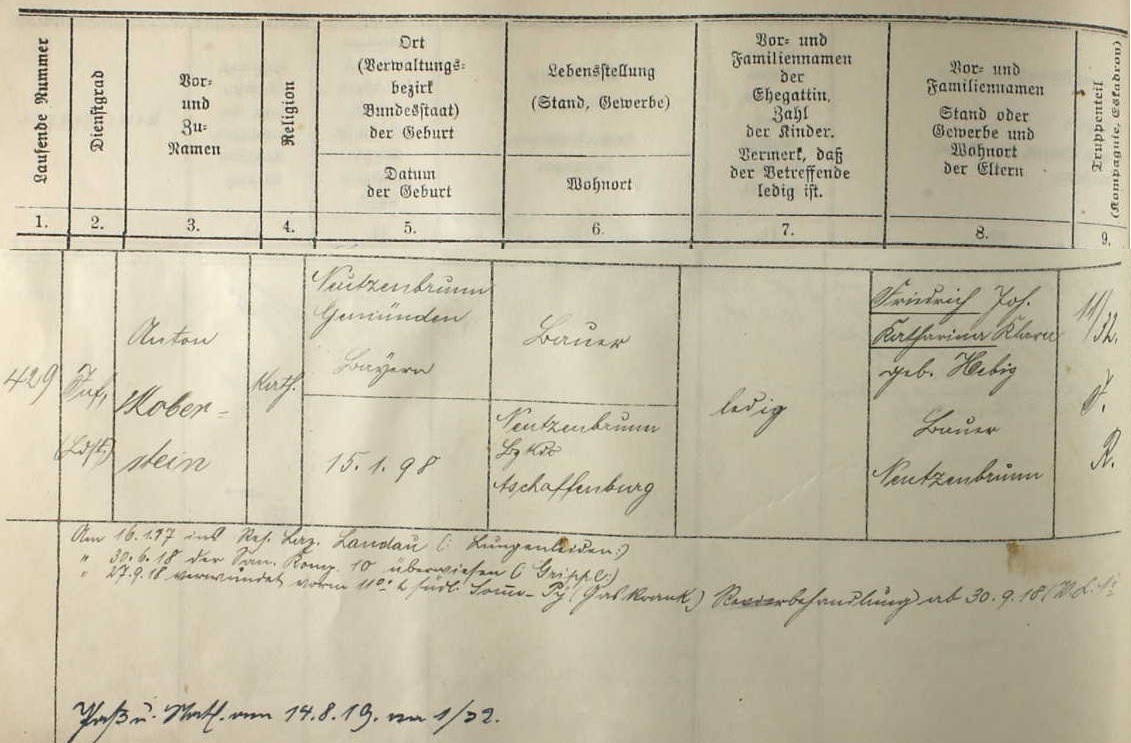 Laufende Nummer
Dienstgrad
Vor-
und
Zu-
Namen
Religion
Ort
(Verwaltungs-
bezirk
Bundesstaat)
der Geburt
Datum
der Geburt
Lebensstellung
(Stand, Gewerbe)
Wohnort
Vor- und
Familiennamen
der
Ehegattin.
Zahl
der Kinder.
Vermerk, daß
der Betreffende
ledig ist.
Vor- und
Familiennamen
Stand oder
Gewerbe und
Wohnort
der Eltern
Truppenteil
(Kompagnie, Eskadron)
1.
2.
3.
4.
5.
6.
7.
8.
9.
429
Inf.
(Ldst.)
Anton
Kober-
stein
Kath.
Neutzenbrunn
Gemünden
Bayern
15.1.98
Bauer
Neutzenbrunn
Aschaffenburg
ledig
Friedrich Jos.
Katharina Klara
geb. Hebig
Bauer
Neutzenbrunn
11/32.
J.
R.
Am 16.1.17 ins Res. Laz. Landau (: Lungenleiden :)
" 30.6.18 der San. Komp. 10 überwiesen (: Grippe :)
" 27.9.18 verwundet vorm 11°° südl. Somme-Py (Gaskrank) Revierbehandlung ab 30.9.18
14.8.19. 1/32.